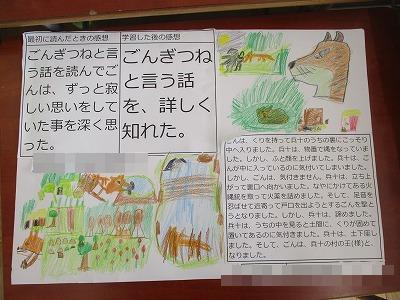 最初に読んだときの感想
ごんぎつねと言
う話を読んでご
んは、ずっと寂
しい思いをして
いた事を深く思
った。
学習した後の感想
ごんぎつね
と言う話
を、詳しく
知れた。
ごんは、くりを持って兵十のうちの裏にこっそり
中へ入りました。兵十は、物置で縄をなっていま
した。しかし、ふと顔を上げました。兵十は、ごん
が中に入っているのに気付いてしまいました。
しかし、ごんは、気付きません。兵十は、立ち上
がって裏口へ向かいました。なやにかけてある火
縄銃を取って火薬を詰めました。そして、足音を
忍ばせて近寄って戸口を出ようとするごんを撃と
うとなりました。しかし、兵十は、諦めました。
兵十は、うちの中を見ると土間に、くりが固めて
置いてあるのに気付きました。兵十は、土下座し
ました。そして、ごんは、兵十の村の王(様)と、
なりました。